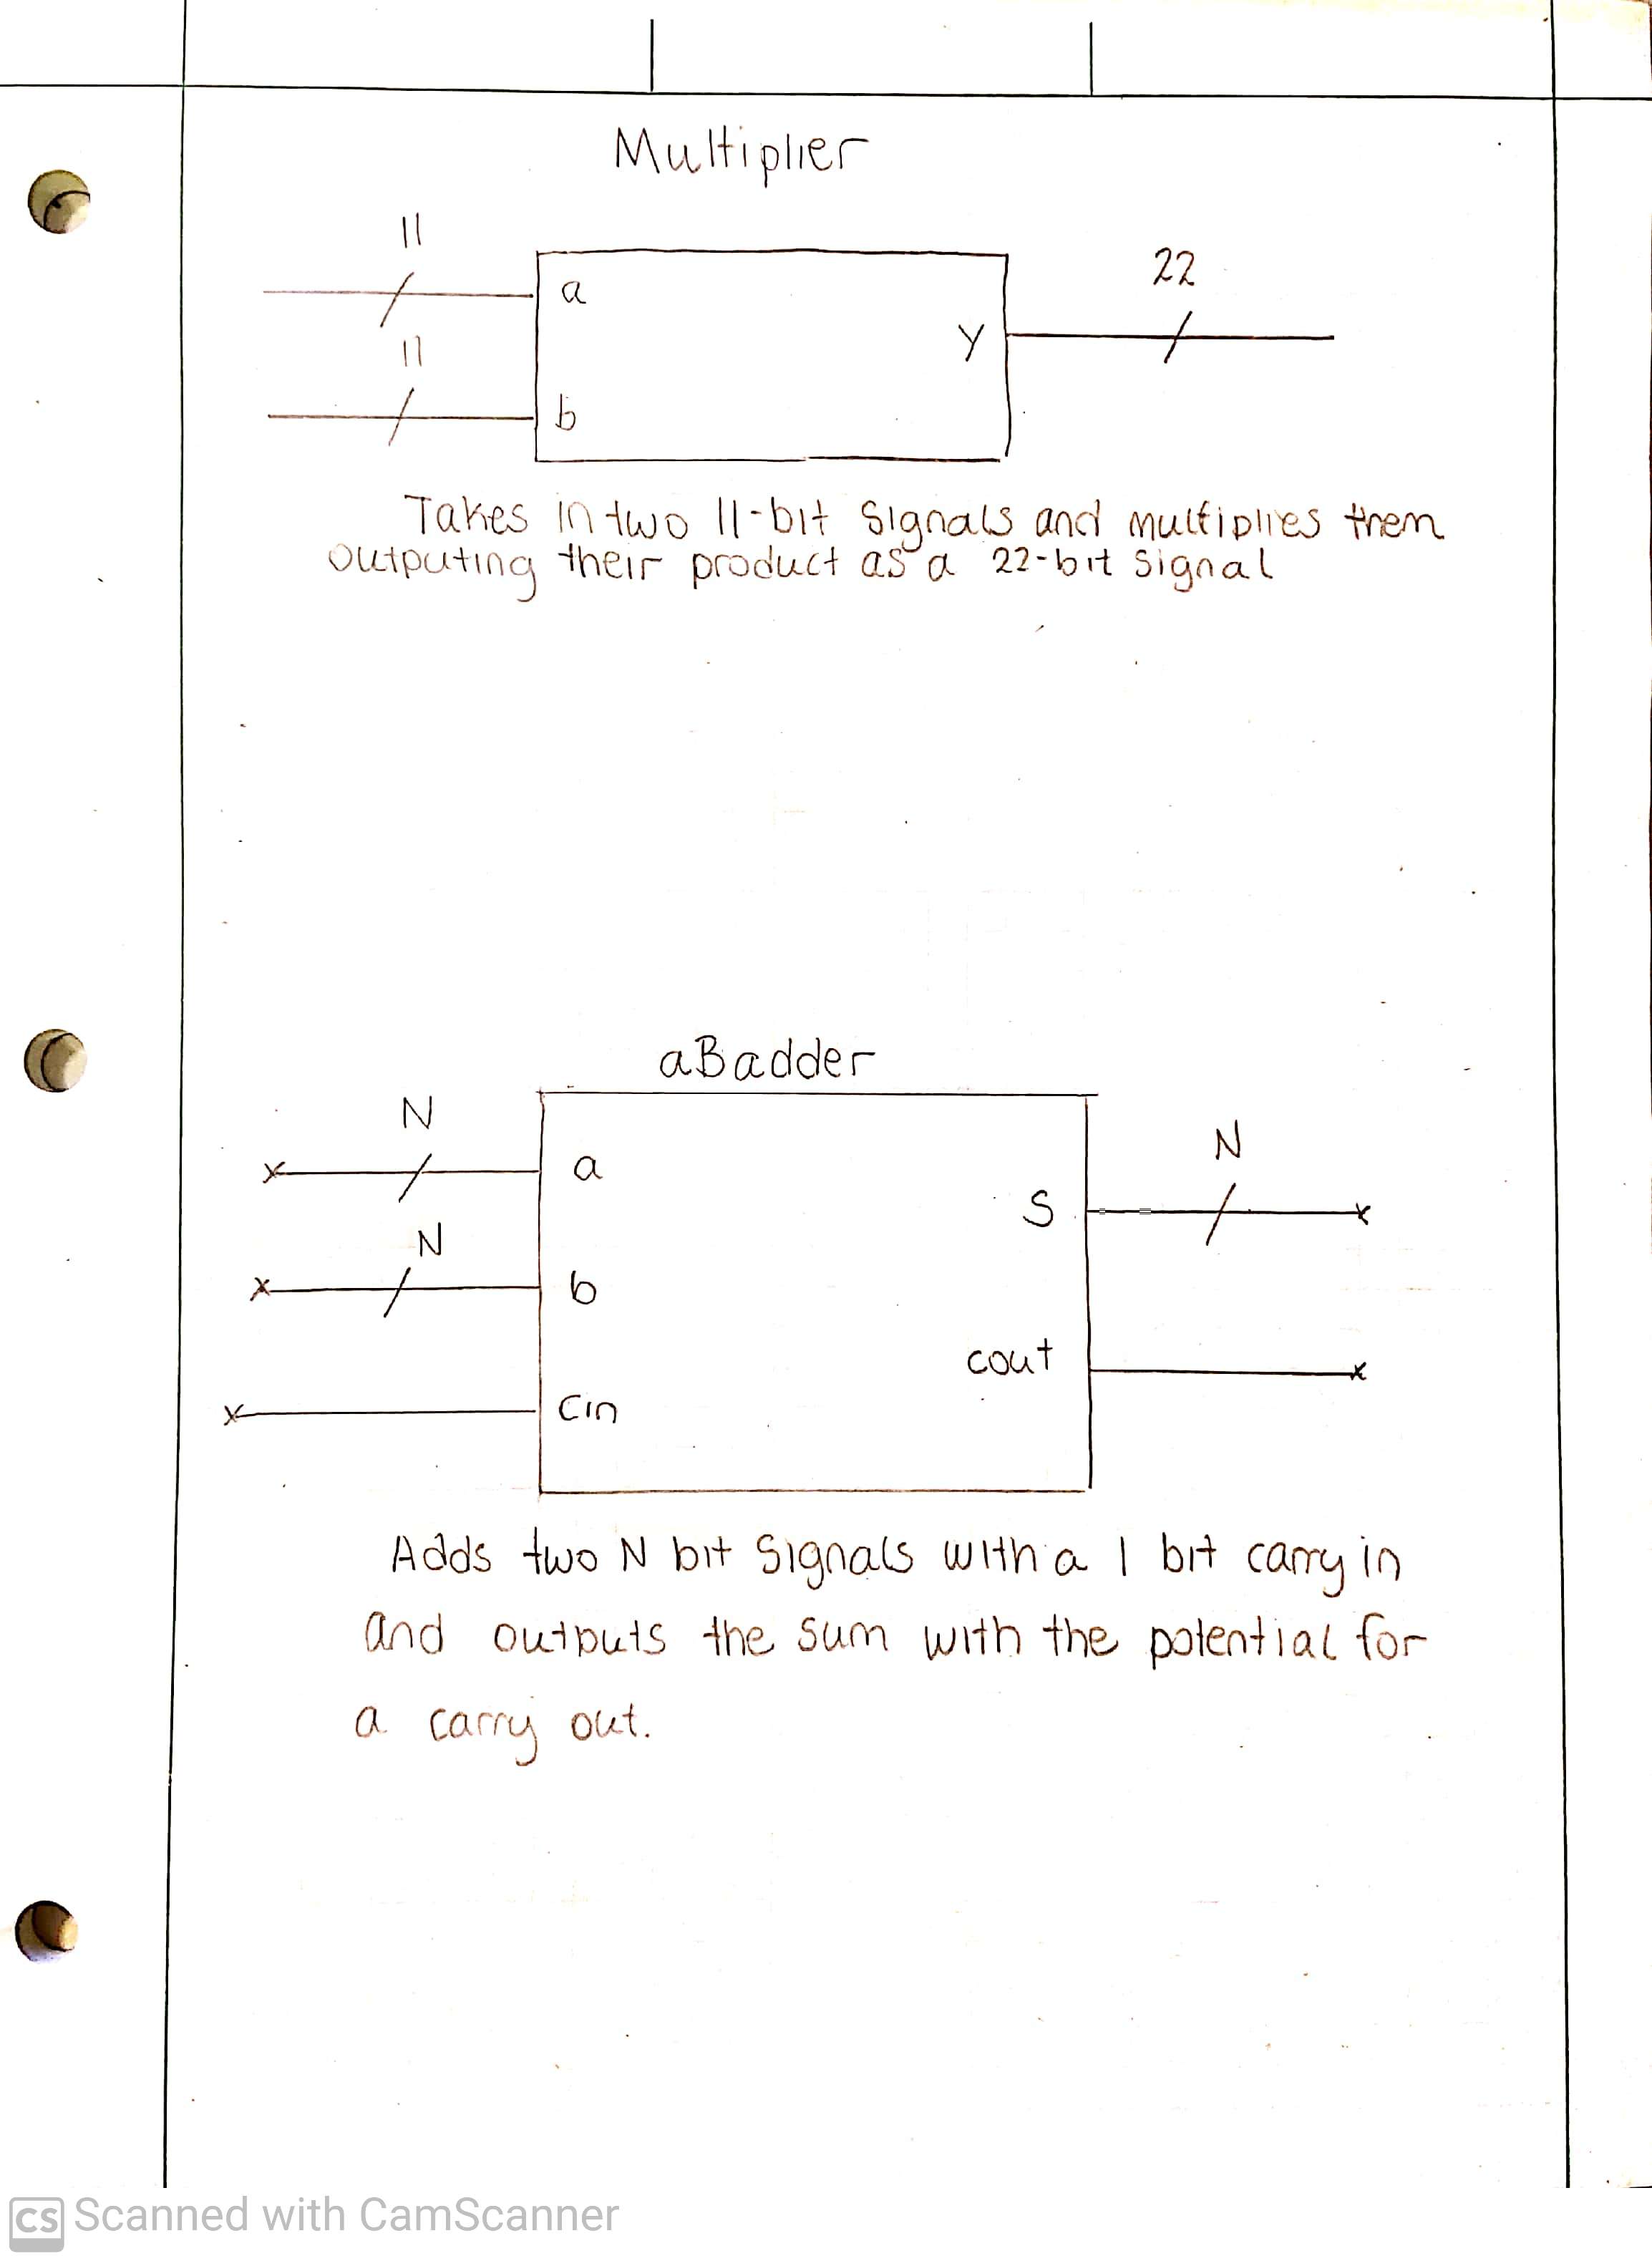 Multiplier
11
22
a
y
11
b
Takes in two 11-bit signals and multiplies them
outputing their product as a 22-bit signal
aBadder
N
N
a
S
N
b
cout
Cin
Adds two N bit signals with a 1 bit carry in
and outputs the sum with the potential for
a carry out.
CS Scanned with CamScanner